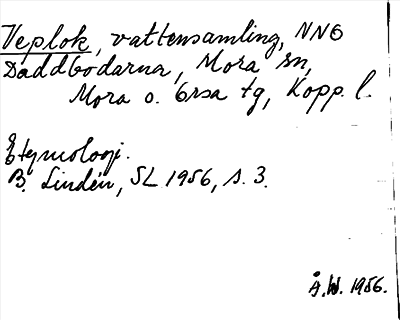 Veplok, vattensamling, NNO
Däddbodarna, Mora sn,
Mora o. Orsa tg, Kopp. l.
Etymologi.
B. Lindén, SL 1956, s. 3.
Å.W. 1956.